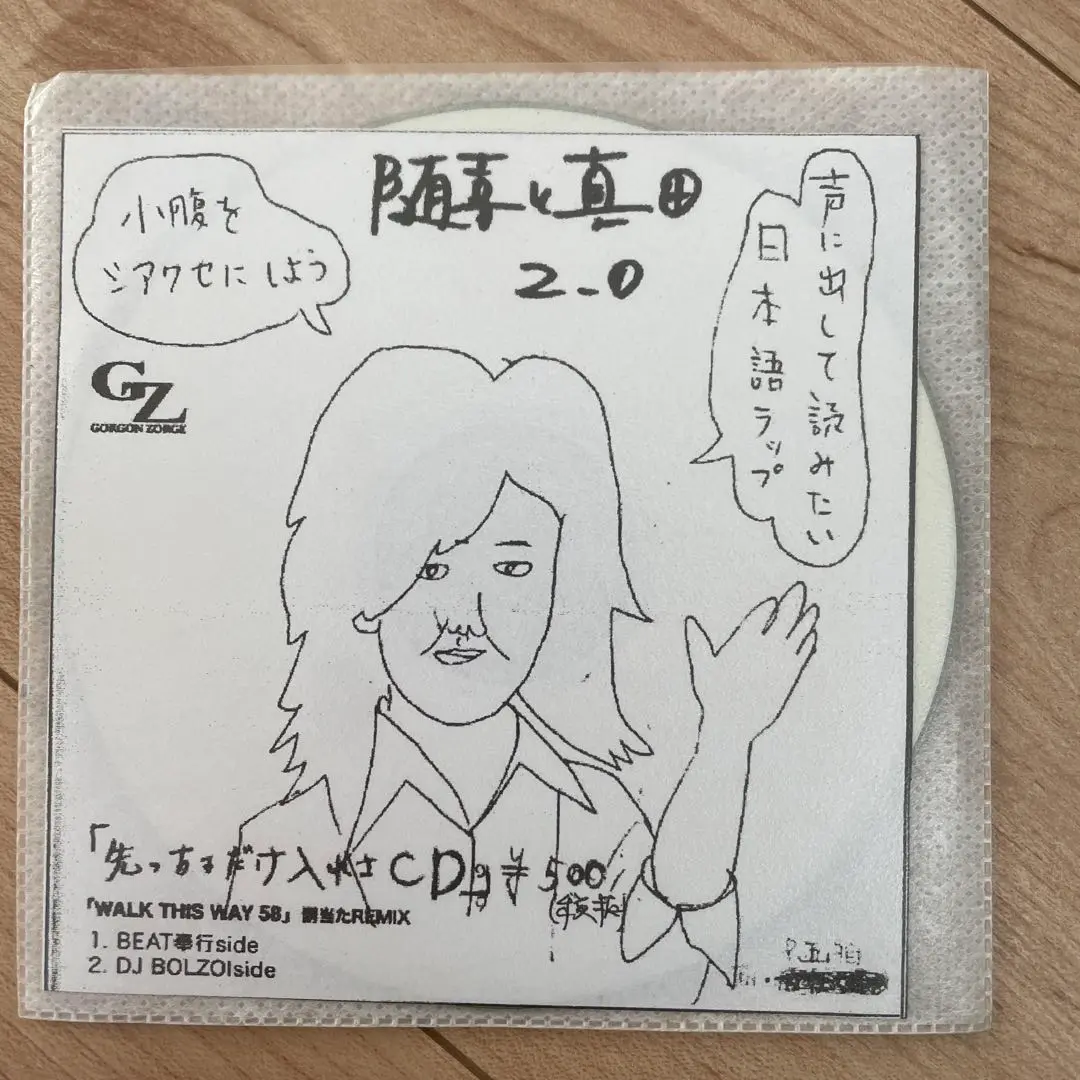 随喜と真田
2.0
小腹を
シアワセにしよう
声に出して読みたい
日本語ラップ
GZ
GORGON ZORGE
「先っちょだけ入れさCD」¥500
「WALK THIS WAY 58」割当たREMIX
1. BEAT奉行side
2. DJ BOLZOIside